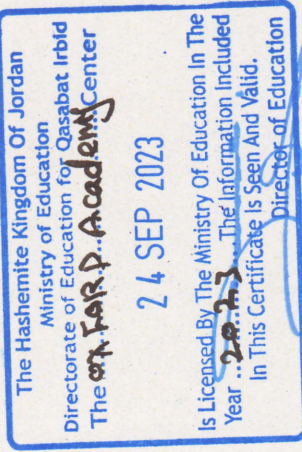 The Hashemite Kingdom Of Jordan
Ministry of Education
Directorate of Education for Qasabat Irbid
The ..... Academy Center
24 SEP 2023
Is Licensed By The Ministry Of Education In The
Year ..2023.... The Information Included
In This Certificate Is Seen And Valid.
Director of Education